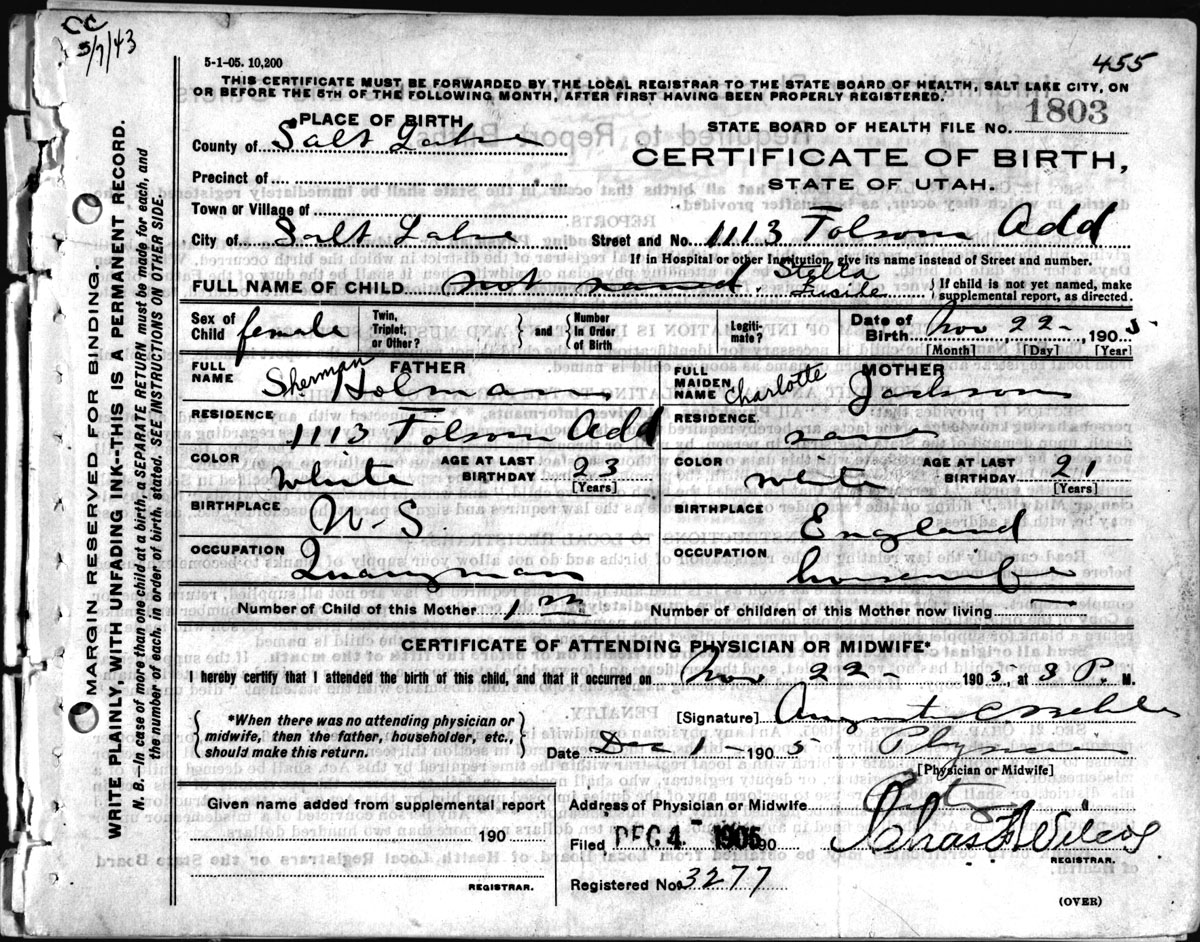 CC
5/7/43
5-1-05. 10,200
455
THIS CERTIFICATE MUST BE FORWARDED BY THE LOCAL REGISTRAR TO THE STATE BOARD OF HEALTH, SALT LAKE CITY, ON
OR BEFORE THE 5TH OF THE FOLLOWING MONTH, AFTER FIRST HAVING BEEN PROPERLY REGISTERED.
PLACE OF BIRTH
STATE BOARD OF HEALTH FILE NO. 1803
County of Salt Lake
CERTIFICATE OF BIRTH,
STATE OF UTAH.
Precinct of
Town or Village of
City of Salt Lake Street and No. 1113 Folsom Add
If in Hospital or other Institution, give its name instead of Street and number.
FULL NAME OF CHILD not named Stella
If child is not yet named, make
supplemental report, as directed.
Sex of Child female
Twin, Triplet, or Other? and Number In Order of Birth
Legiti- mate?
Date of Birth Nov 22 - , 1905
[Month] [Day] [Year]
FULL NAME FATHER Sherman Holman
FULL MAIDEN NAME MOTHER Charlotte Jackson
RESIDENCE 1113 Folsom Add
RESIDENCE same
COLOR White AGE AT LAST BIRTHDAY 23 [Years]
COLOR White AGE AT LAST BIRTHDAY 21 [Years]
BIRTHPLACE
BIRTHPLACE England
OCCUPATION Quaryman
OCCUPATION housewife
Number of Child of this Mother 1 Number of children of this Mother now living
CERTIFICATE OF ATTENDING PHYSICIAN OR MIDWIFE*
I hereby certify that I attended the birth of this child, and that it occurred on Nov 22 - 1905, at 3 P. M.
*When there was no attending physician or
midwife, then the father, householder, etc.,
should make this return.
[Signature]
Date Dec 1 - 1905
[Physician or Midwife]
Given name added from supplemental report
190
REGISTRAR.
Address of Physician or Midwife
Filed DEC 4 - 1905 190 Chas F Wilcox
REGISTRAR.
Registered No. 3277
(OVER)
MARGIN RESERVED FOR BINDING
WRITE PLAINLY, WITH UNFADING INK--THIS IS A PERMANENT RECORD.
N. B.--In case of more than one child at a birth, a SEPARATE RETURN must be made for each, and
the number of each, in order of birth, stated. SEE INSTRUCTIONS ON OTHER SIDE.